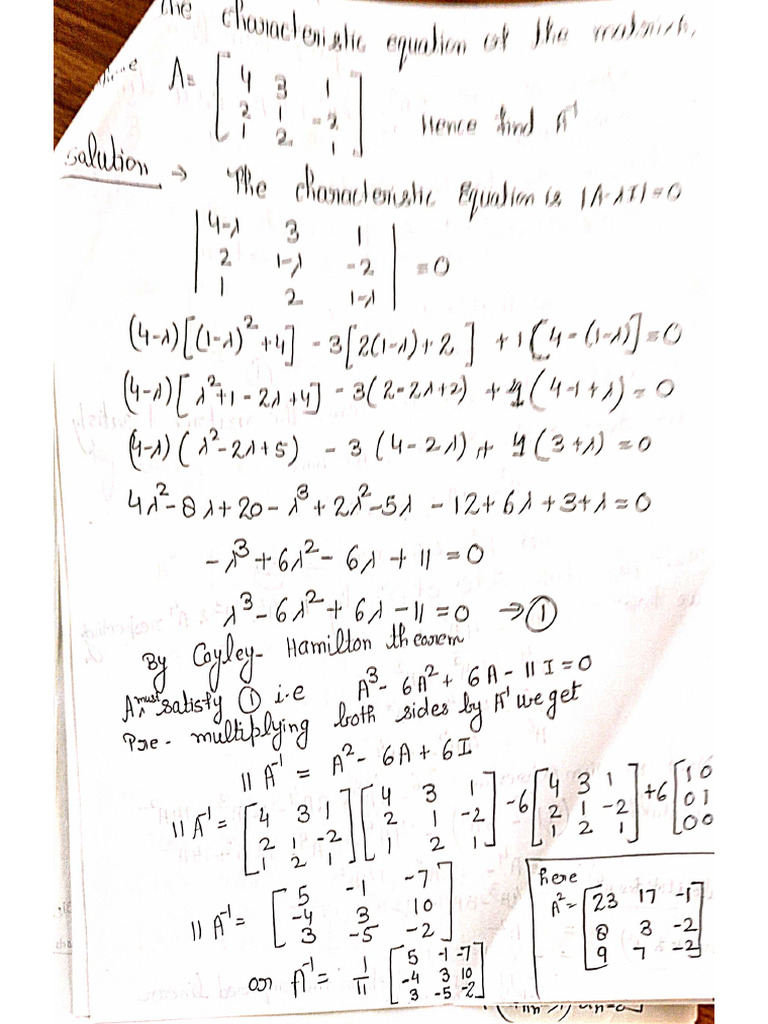 the characteristic equation of the matrix.
A= [4 3 1
2 1 -2
1 2 1] Hence find A⁻¹
Salution → The characteristic Equation is |A-λI|=0
|4-λ 3 1
2 1-λ -2
1 2 1-λ| =0
(4-λ)[(1-λ)²+4] - 3[2(1-λ)+2] +1[4-(1-λ)]=0
(4-λ)[λ²+1-2λ+4] - 3(2-2λ+2) +1(4-1+λ)=0
(4-λ)(λ²-2λ+5) - 3(4-2λ)+ 1(3+λ)=0
4λ²-8λ+20-λ³+2λ²-5λ-12+6λ+3+λ=0
-λ³+6λ²-6λ+11=0
λ³-6λ²+6λ-11=0 →①
By Cayley-Hamilton theorem
A must satisfy ① i.e A³-6A²+6A-11I=0
Pre-multiplying both sides by A⁻¹ we get
11A⁻¹ = A²-6A+6I
11A⁻¹= [4 3 1
2 1 -2
1 2 1] [4 3 1
2 1 -2
1 2 1] -6 [4 3 1
2 1 -2
1 2 1] +6 [1 0
0 1
0 0
11A⁻¹= [5 -1 -7
-4 3 10
3 -5 -2]
or A⁻¹= 1/11 [5 -1 -7
-4 3 10
3 -5 -2]
here
A²= [23 17 -1
8 3 -2
9 7 -2]